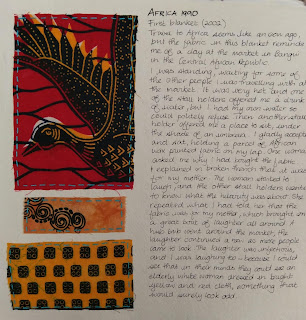 AFRICA 1990
First blanket (2002)
Travel to Africa seems like an eon ago,
but the fabric in this blanket reminds
me of a day at the market in Bangui
in the Central African Republic
I was standing, waiting for some of
the other people I was travelling with at
the market. It was very hot and one
of the stall holders offered me a drink
of water, but I had my own water so
could politely refuse. Then another stall
holder offered me a place to sit, under
the shade of an umbrella. I gladly accepted
and sat, holding a parcel of African
wax printed fabric on my lap. One woman
asked me why I had bought the fabric.
I explained in broken French that it was
for my mother. The woman started to
laugh, and the other stall holders wanted
to know what the hilarity was about. She
repeated what I had told her that the
fabric was for my mother, which brought on
a great gale of laughter all around. I
was back round the market, the
laughter continued a ran as more people
came to look. The laughter was infectious,
and I was laughing too - because I could
see that in their minds they could see an
elderly white woman dressed in bright
yellow and red cloth, something that
would surely look odd